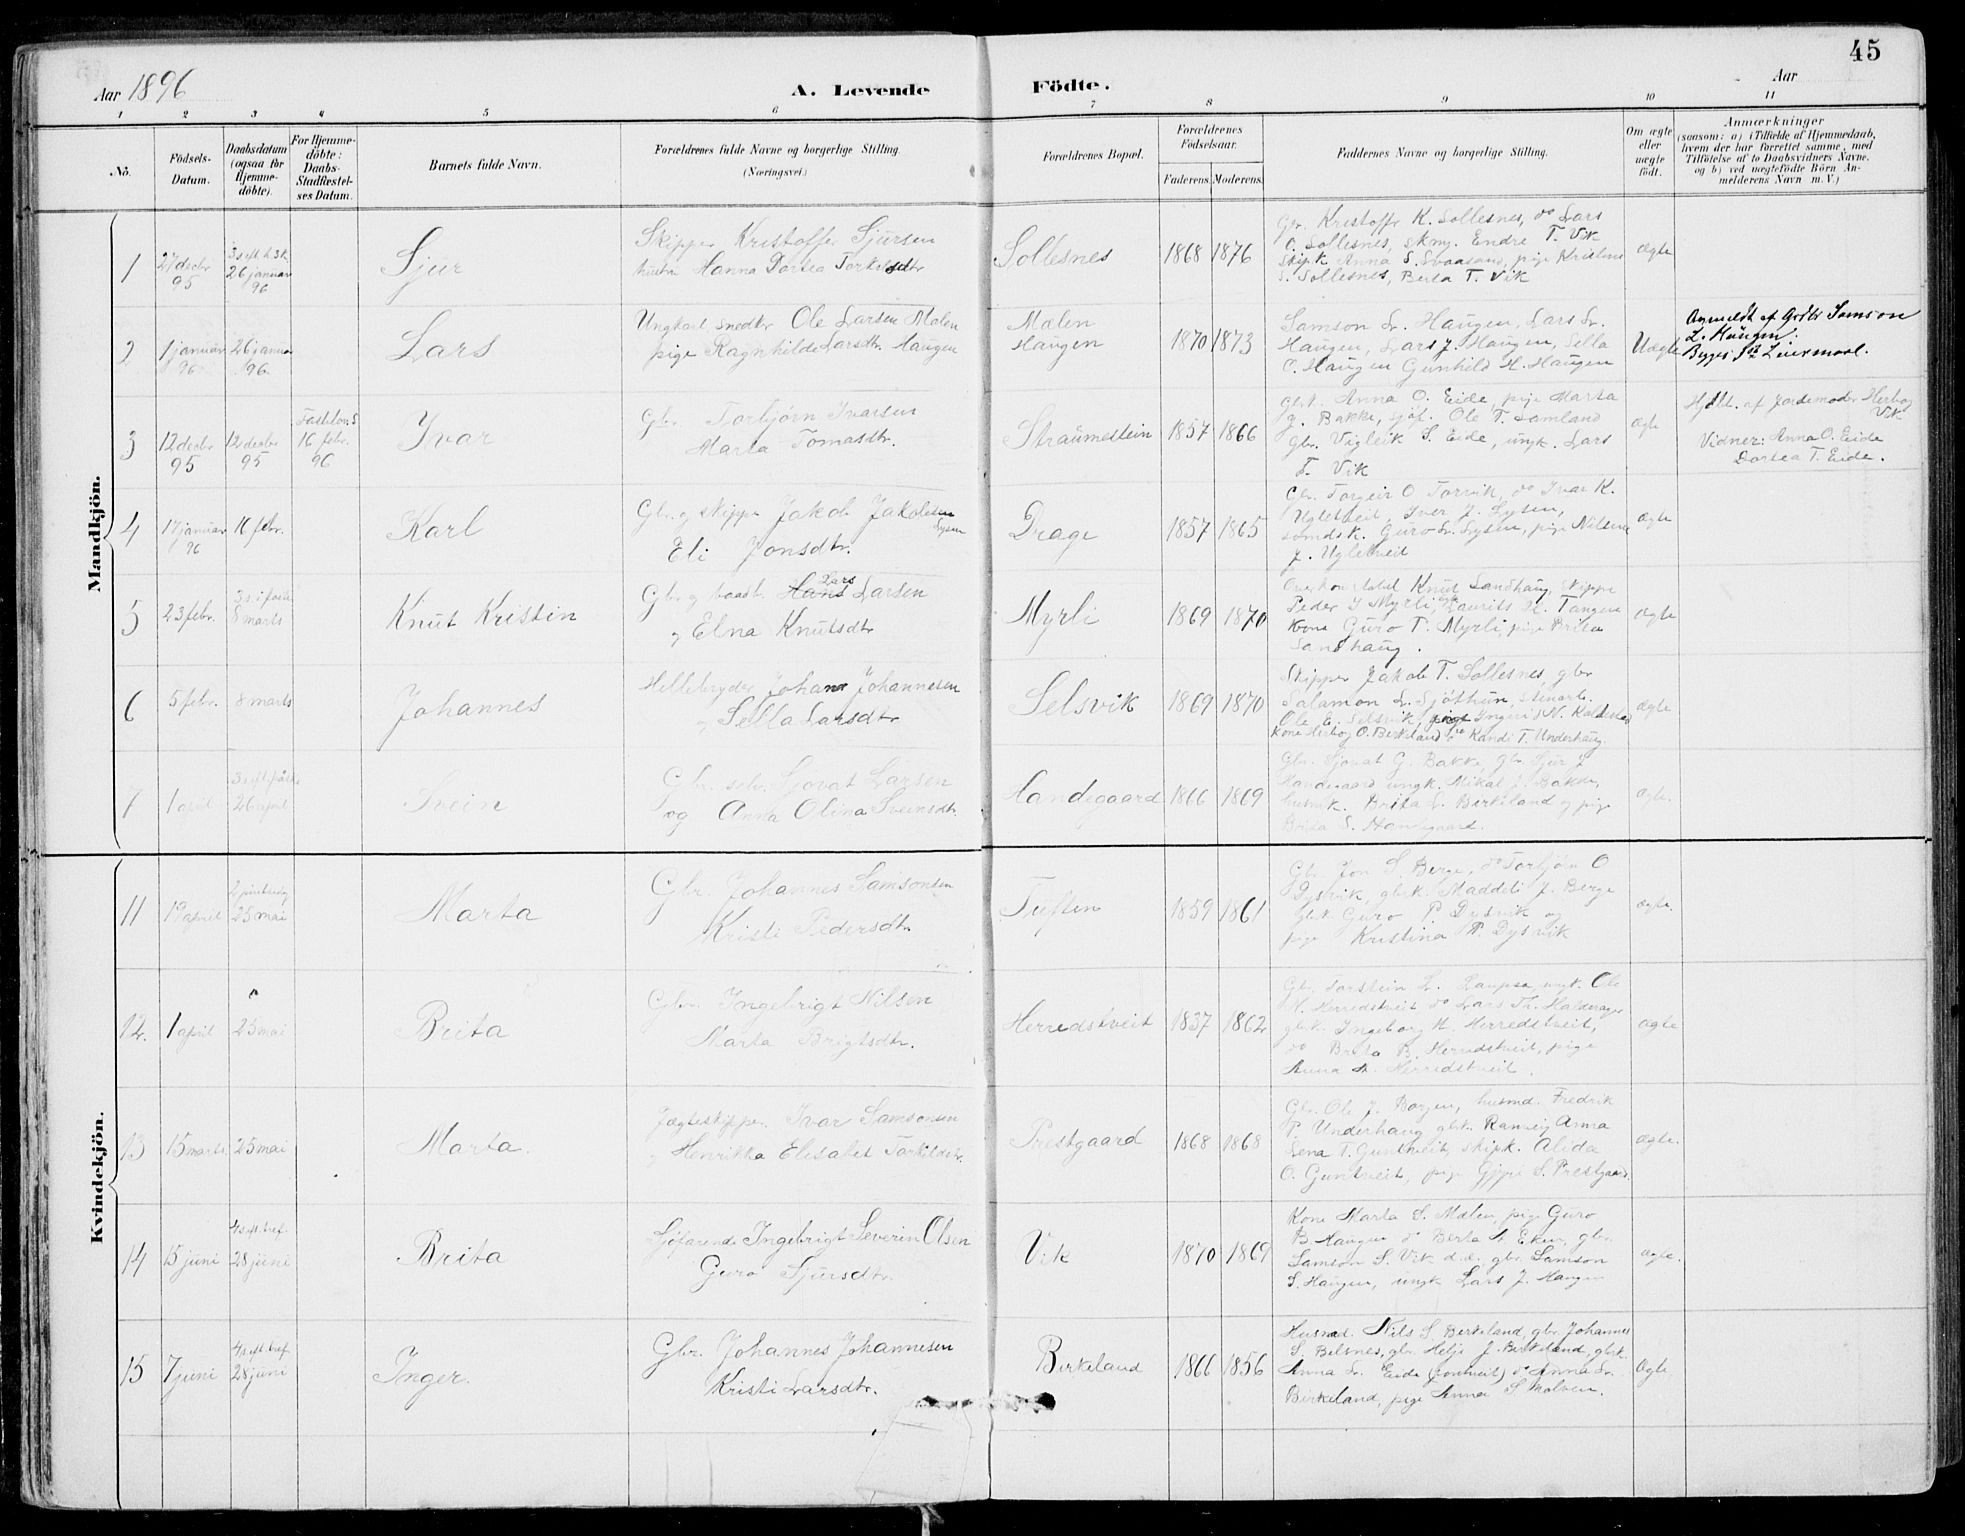 45
Aar 1896
A. Levende Födte.
Aar
1 2 3 4 5 6 7 8 9 10 11
No.
Födsels-Datum.
Daabsdatum (ogsaa for Hjemme-döbte).
For Hjemme-döbte: Daabs-Stadfæstel-ses Datum.
Barnets fulde Navn.
Forældrenes fulde Navne og borgerlige Stilling. (Næringsvei.)
Forældrenes Bopæl.
Forældrenes Födselsaar.
Faderens. Moderens.
Faddernes Navne og borgerlige Stilling.
Om ægte eller uægte födt.
Anmærkninger
(saasom: a) i Tilfælde af Hjemmedaab,
hvem der har forrettet samme, med
Tilföielse af to Daabsvidners Navne.
og b) ved uægtefödte Börn An-
melderens Navn m. V.)
Mandkjön.
1
27 decbr 95
26 januar 96
Sjur
Skipper Kristoffer Sjursen
hustru Hanna Dortea Torkildsdtr
Sollesnes
1868 1876
Gbr. Kristoffer K. Sollesnes, do Lars
O. Sollesnes, skmg. Endre T. Vik
skip.k Anna S. Svaasand, pige Kristine
S. Sollesnes, Berta T. Vik
ægte
2
1 januar 96
26 januar 96
Lars
Ungkarl snedker Ole Larsen Mælen
pige Ragnhilde Larsdtr. Haugen
Mælen
Haugen
1870 1873
Samson L. Haugen, Lars L.
Haugen, Lars J. Haugen, Sella
O. Haugen Gunhild H. Haugen
Uægte
Anmeldt af Grdbr Samson
L. Haugen.
Begges 1ste Leiermaal.
3
12 decbr 95
12 decbr 95
Fastelav. S
16 febr. 96
Ivar
Gbr Torbjörn Ivarsen
Marta Tomasdtr.
Straumestein
1857 1866
Gbrk. Anna O. Eide, pige Marta
G. Bakke, sjöf. Ole T. Samland
Gbr. Vigleik S. Eide, ungk. Lars
T. Vik
ægte
Hjdbt. af Jordemoder Herbog
Vik
Vidner: Anna O. Eide
Dortea T. Eide.
4
17 januar 96
16 febr.
Karl
Gbr. og skipper Jakob Jakobsen
Lysen
Eli Jonsdtr.
Drage
1857 1865
Gbr. Torgeir O Torvik, do Ivar K.
Ugletveit, Iver J. Lysen,
Guro L. Lysen, pige Nilsine
J. Ugletveit
ægte
5
23 febr.
3 s. i faste
8 marts
Knut Kristin
Lars
Gbr og baadb. Hans Larsen
og Elna Knutsdtr
Myrli
1869 1870
Knut Sandhaug, skipper
Peder J Myrli, Laurits H. Tangen
kone Guro T. Myrli, pige Brita
Sandhaug.
ægte
6
5 febr.
8 marts
Johannes
Hellebryder Johan Johannesen
og Sella Larsdtr
Selsvik
1869 1870
Skipper Jakob T. Sollesnes, gbr
Salamon L. Sjöthun, stenarb.
Ole E. Selsvik, pige Ingeri N. Kaldestad
kone Herbog O. Birkeland do Kandi T. Underhaug.
ægte
7
1 april
3 s. eft. påske
26 april
Svein
Gbr. selv. Sjovat Larsen
og Anna Olina Sveinsdtr.
Handegaard
1866 1869
Gbr. Sjovat G. Bakke, gbr Sjur J
Handegaard ungk. Mikal J. Bakke,
husmk. Brita L. Birkeland og pige
Brita S. Handegaard.
ægte.
Kvindekjön.
11
19 april
2 pintsedg
25 mai
Marta
Gbr. Johannes Samsonsen
Kristi Pedersdtr.
Tuften
1859 1861
Gbr Jon S. Berge, do Torbjön O
Dysvik, gbrk. Maddeli J. Berge
gbrk Guro P. Dysvik og
pige Kristina P. Dysvik
ægte.
12.
1 april
25 mai
Brita
Gbr. Ingebrigt Nilsen
Marta Brigtsdtr.
Herredstveit
1837 1862
Gbr. Torstein L. Laupsa, ungk. Ole
N. Herredstveit do Lars Th. Halderager
gbrk. Ingeborg H. Herredstveit,
do Brita B. Herredstveit, pige
Anna A. Herredstveit.
ægte
13
15 marts
25 mai
Marta.
Jægteskipper. Ivar Samsonsen
og Henrikka Elisabet Torkildsdtr.
Prestgaard
1868 1868
Gbr. Ole J. Borgen, husmd. Fredrik
P. Underhaug gbrk. Ranveig Anna
Lena T. Guntveit, skipk. Alida
O. Guntveit, pige Gjøri S. Prestgaard.
ægte.
14
15 juni
4 s. eft. tref.
28 juni
Brita
Sjöfarende Ingebrigt Severin Olsen
Guro Sjursdtr.
Vik
1870 1869
Kone Marta S. Mælen, pige Guro
B Haugen do Berta A Eken, gbr.
Samson S. Vik d.æ. gbr. Samson
S. Haugen, ungk Lars J. Haugen
ægte.
15
7 juni
4 s. eft. tref.
28 juni
Inger.
Gbr. Johannes Johannesen
Kristi Larsdtr.
Birkeland
1866 1856
Husmd. Nils S. Birkeland, gbr. Johannes
S. Belsnes, gbr. Helje J. Birkeland, gbrk.
Anna L. Eide (Jontveit) do Anna L.
Birkeland, pige Anna S Molven.
Ægte